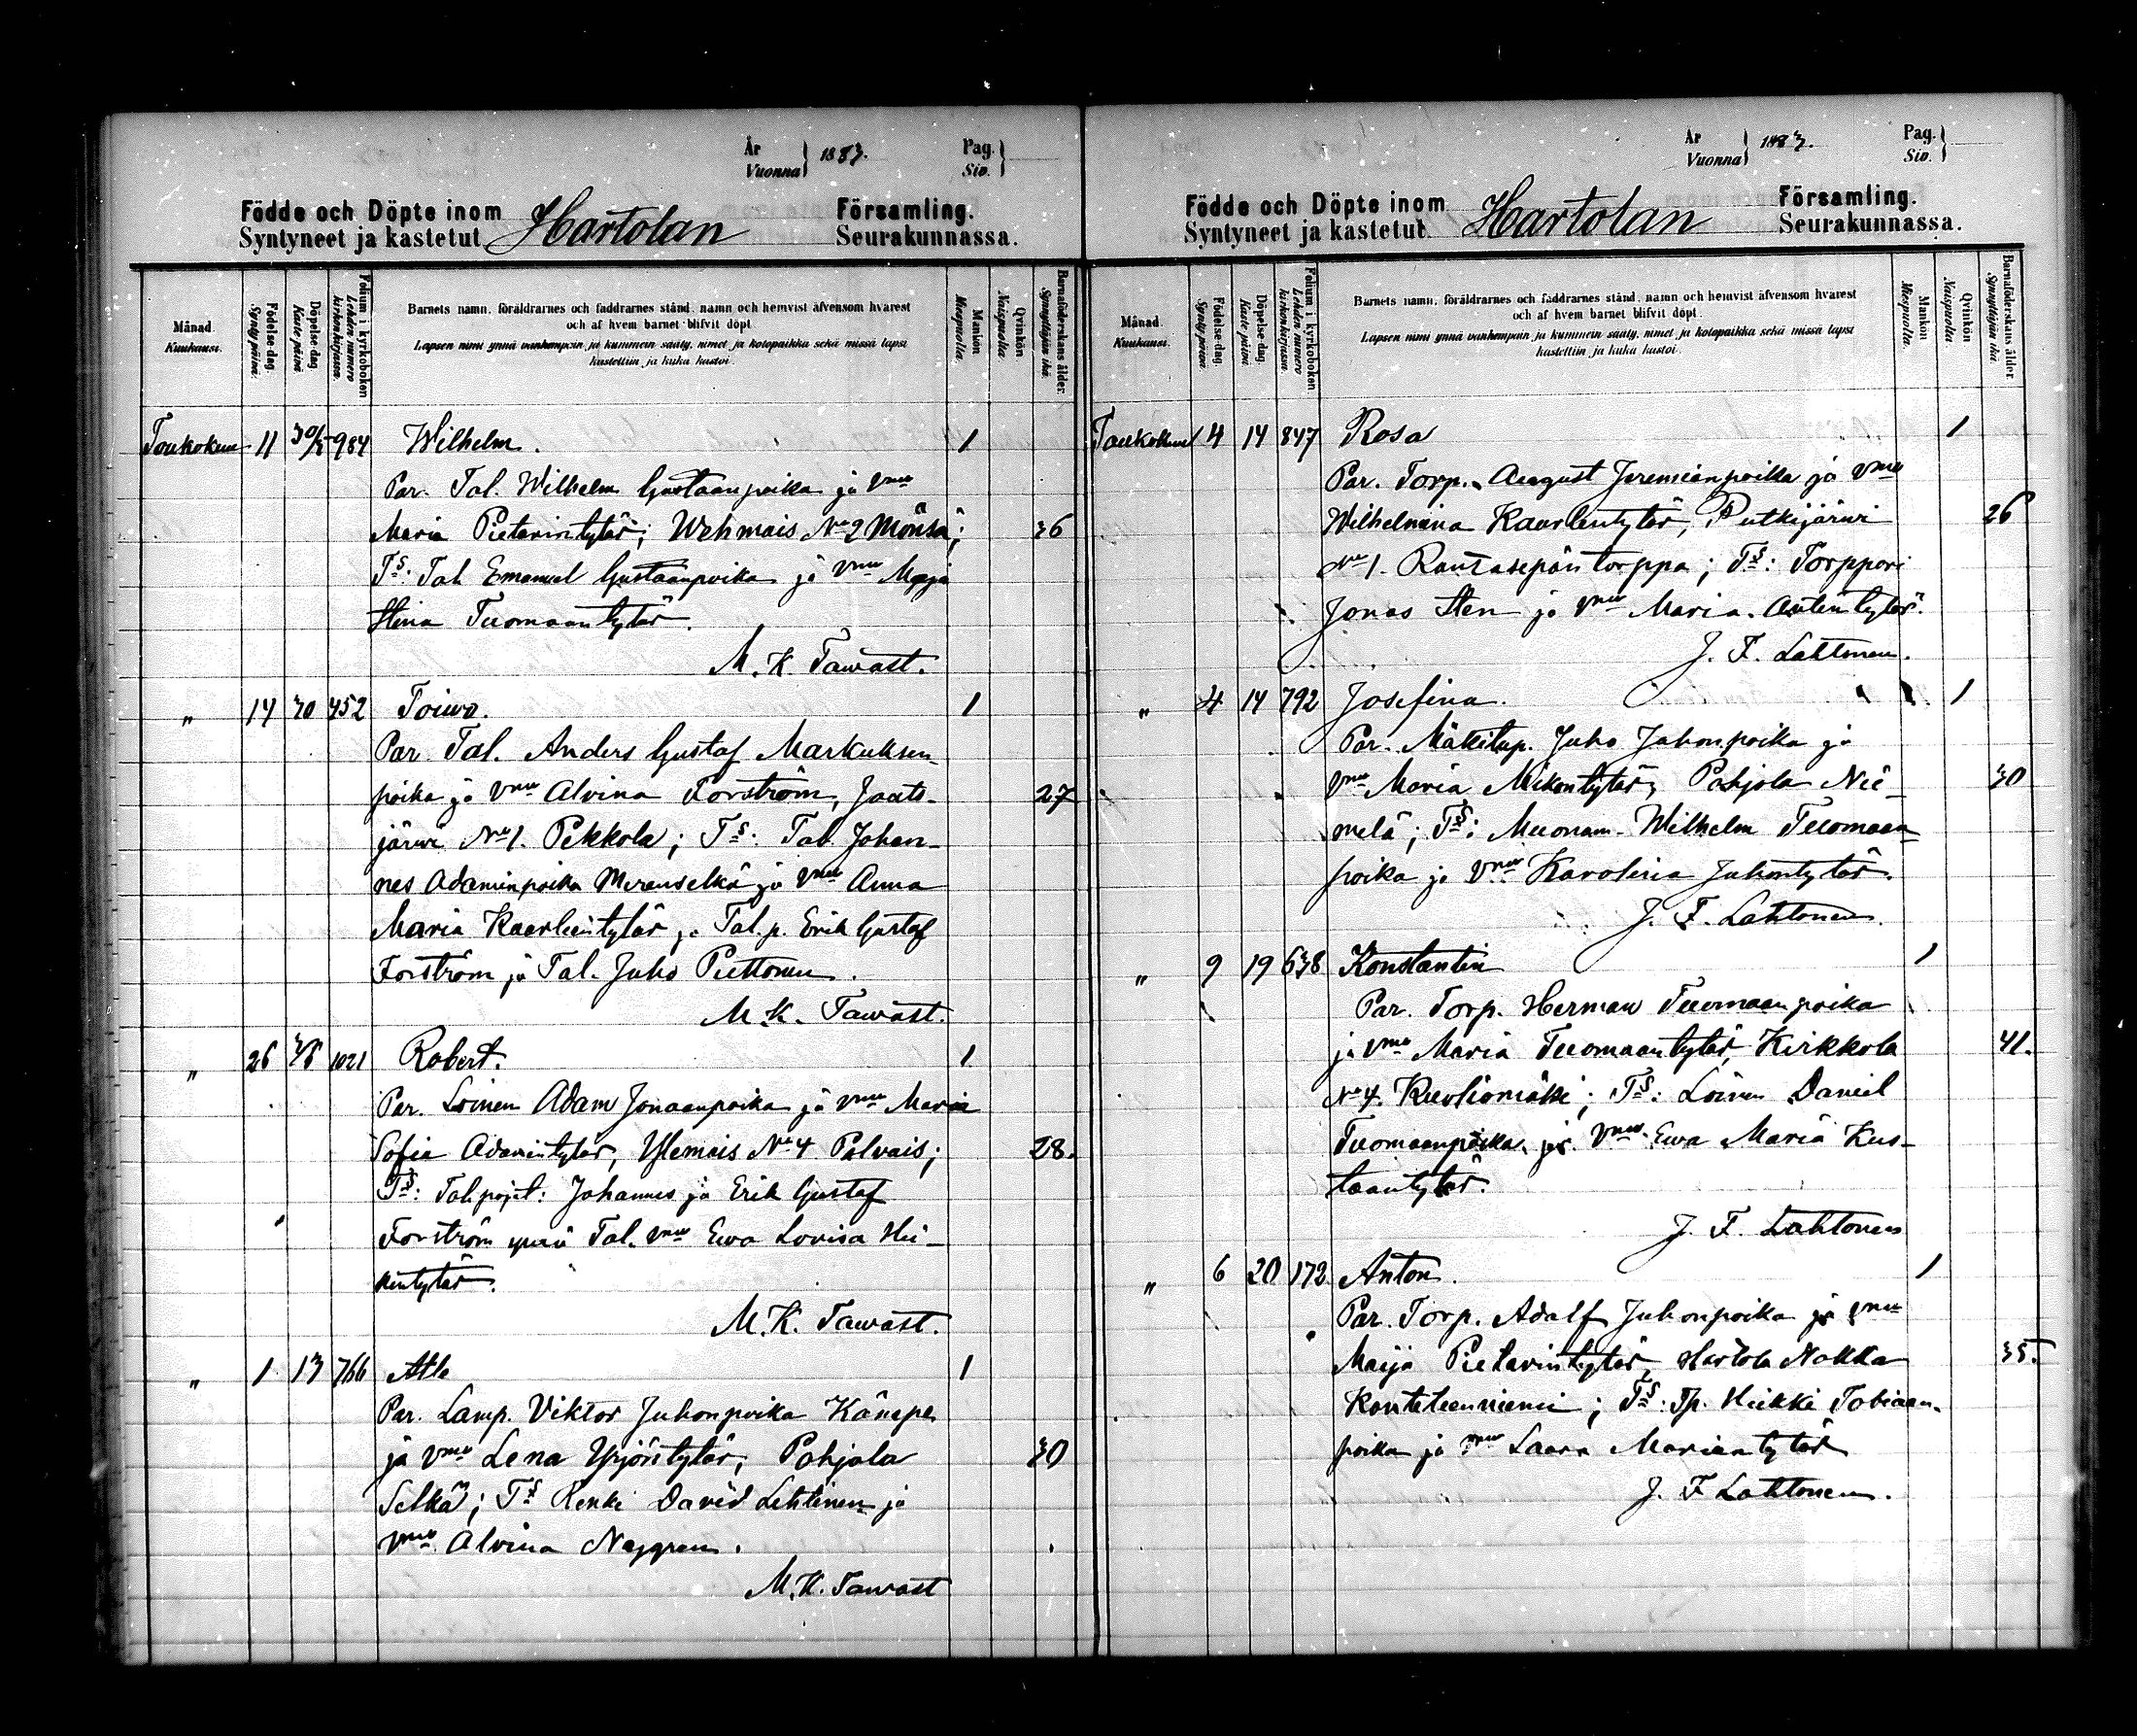 År
Vuonna } 1883.
Pag.
Siv. }
Födde och Döpte inom
Syntyneet ja kastetut
Hartolan
Församling.
Seurakunnassa.
Månad.
Kuukausi.
Födelse dag.
Synty päivä.
Döpelse dag
Kaste päivä
Folium i kyrkoboken
Lehden numero
kirkonkirjassa.
Barnets namn, föräldrarnes och faddrarnes stånd, namn och hemvist äfvensom hvarest
och af hvem barnet blifvit döpt.
Lapsen nimi ynnä vanhempain ja kummein sääty, nimet ja kotopaikka sekä missä lapsi
kastettiin ja kuka kastoi.
Mankön
Miespuolia.
Qvinkön
Naispuolia
Barnaföderskans ålder.
Synnyttäjän ikä.
Toukokuu 11 30/5 984 Wilhelm. 1
Par. Tal. Wilhelm Gustaanpoika ja vmo
Maria Pietarintytär; Wehmais No 2 Mönsä; 36
Ts. Tal. Emanuel Gustaanpoika ja vmo Maja
Stina Tuomaantytär.
M. K. Tawast.
" 14 30 452 Toiwo. 1
Par. Tal. Anders Gustaf Markuksen-
poika ja vmo Alvina Forström, Jaats- 27
järwi No 1. Pekkola; Ts: Tal. Johan-
nes Adaminpoika ja vmo Anna
Maria Kaarleintytär, Tal. p. Erik Gustaf
Forström ja Tal. Juho Puttonen.
M. K. Tawast.
" 26 1021 Robert. 1
Par. Loinen Adam Jonaanpoika ja vmo Maria
Sofia Adamintytär, Ylemais No 4 Palvais; 28.
Ts: Tal. pojat: Johannes ja Erik Gustaf
Forström ynnä Tal. vmo Ewa Lovisa Hei-
kintytär.
M. K. Tawast.
" 1 13 766 Atle 1
Par. Lamp. Viktor Juhonpoika Kämpe
ja vmo Lena Yrjöntytär, Pohjola 30
Selkä; Ts Renki David Lehtinen ja
vmo Alvina Nygren.
M. K. Tawast
År
Vuonna } 1883.
Pag.
Siv. }
Födde och Döpte inom
Syntyneet ja kastetut
Hartolan
Församling.
Seurakunnassa.
Månad.
Kuukausi.
Födelse dag.
Synty päivä.
Döpelse dag
Kaste päivä
Folium i kyrkoboken
Lehden numero
kirkonkirjassa.
Barnets namn, föräldrarnes och faddrarnes stånd, namn och hemvist äfvensom hvarest
och af hvem barnet blifvit döpt.
Lapsen nimi ynnä vanhempain ja kummein sääty, nimet ja kotopaikka sekä missä lapsi
kastettiin ja kuka kastoi.
Mankön
Miespuolia
Qvinkön
Naispuolia
Barnaföderskans ålder.
Synnyttäjän ikä.
Toukokuu 4 14 847 Rosa 1
Par. Torp. August Jeremianpoika ja vmo
Wilhelmina Kaarlentytär, Putkijärwi 26
No 1. Rautasepän torppa; Ts: Torppari
Jonas Sten ja vmo Maria Antintytär.
J. F. Lahtonen.
" 4 14 792 Josefina. 1
Par. Mäkitup. Juho Juhonpoika ja
vmo Maria Mikontytär, Pohjola Nie- 30
melä; Ts: Muonam. Wilhelm Tuomaan-
poika ja vmo Karolina Juhontytär.
J. F. Lahtonen.
" 9 19 638 Konstantin 1
Par. Torp. Herman Tuomaanpoika
ja vmo Maria Tuomaantytär, Kirkkola 41.
No 4. Kuoliomäki; Ts: Loinen Daniel
Tuomaanpoika ja vmo Ewa Maria Kus-
taantytär.
J. F. Lahtonen
" 6 20 172 Anton. 1
Par. Torp. Adolf Juhonpoika ja vmo
Maija Pietarintytär, Hartola Nokka 35.
Kontteenniemi; Ts: Tp. Heikki Tobiaan-
poika ja vmo Laura Mariantytär
J. F. Lahtonen.